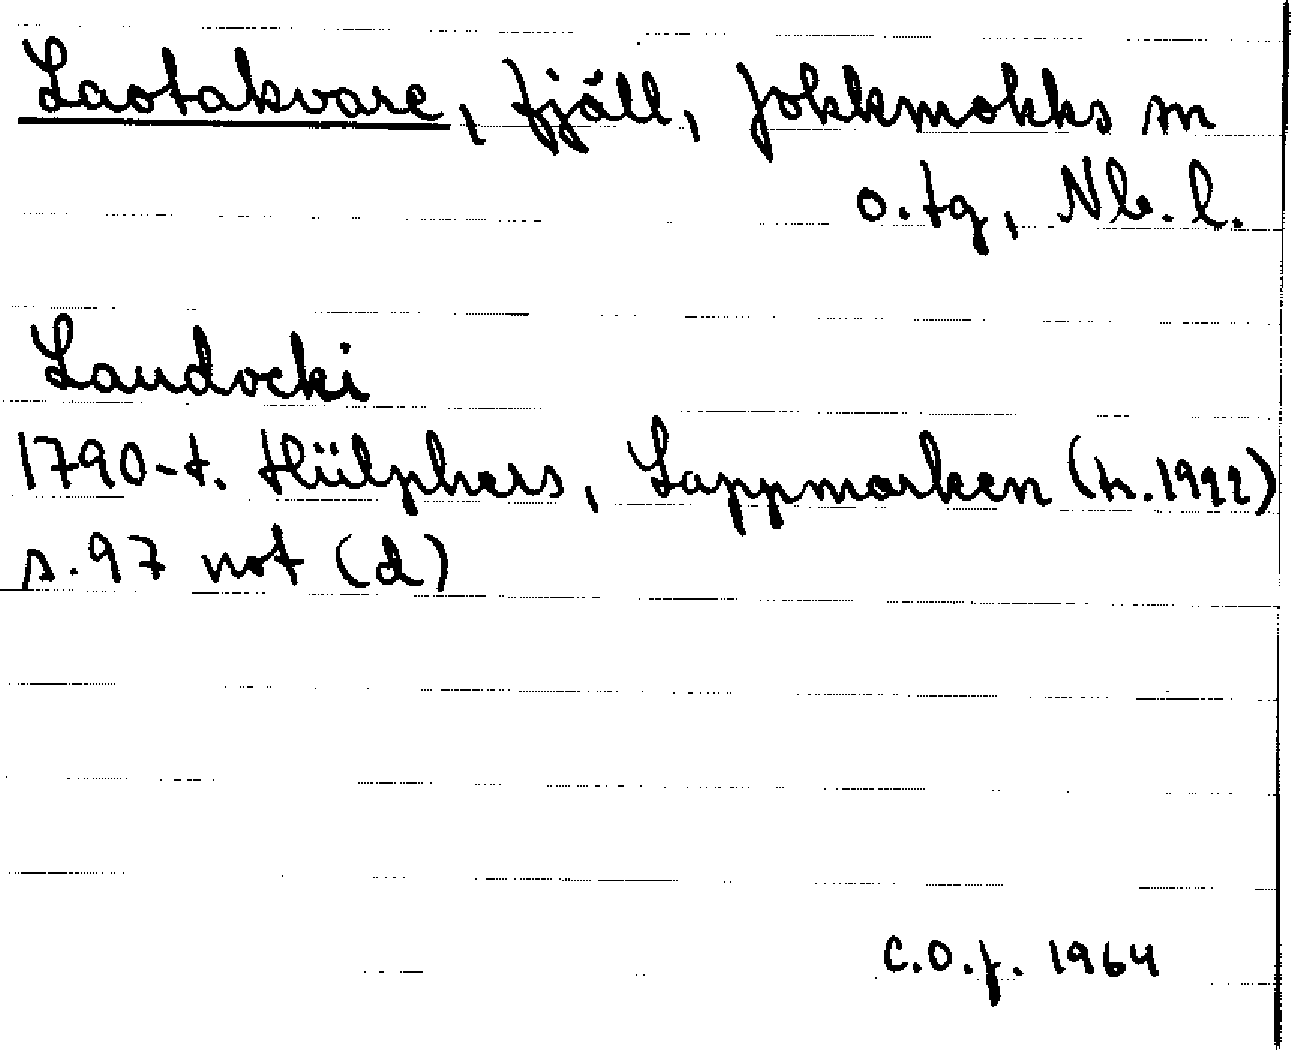 Laotakvare, fjäll, Jokkmokks sn
o. tg, Nb. l.
Laudocki
1790-t. Hülphers, Lappmarken (tr. 1922)
s. 97 not (d)
C.O.J. 1964